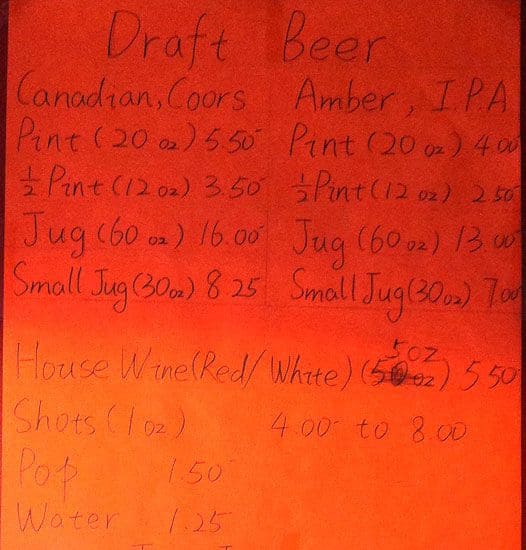 Draft Beer
Canadian, Coors Amber, I.P.A
Pint (20 oz) 5.50 Pint (20 oz) 4.00
½ Pint (12 oz) 3.50 ½ Pint (12 oz) 2.50
Jug (60 oz) 16.00 Jug (60 oz) 13.00
Small Jug (30oz) 8.25 Small Jug (30oz) 7.00
5oz
House Wine (Red/White) 5.50
Shots (1 oz) 4.00 to 8.00
Pop 1.50
Water 1.25